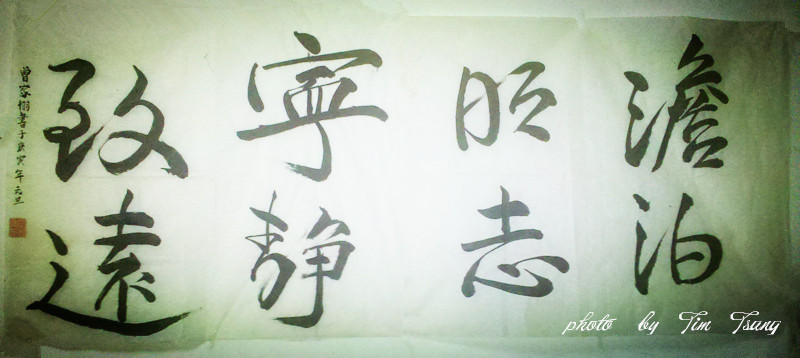 澹泊
明志
寧靜
致遠
曾容栩書于庚寅年元旦
photo by Tim Tsung